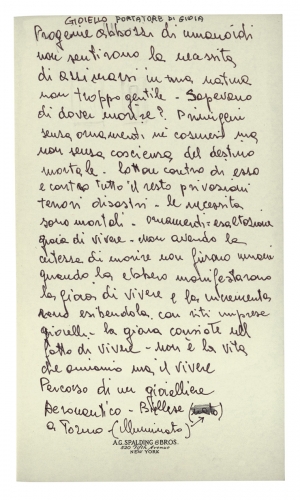 GIOIELLO PORTATORE DI GIOIA
Progenie abbozzi di umanoidi
non sentirono la necessità
di assimarsi in una natura
non troppo gentile - Sapevano
di dover morire? Primigeni
senza ornamenti né cosmesi ma
non senza coscienza del destino
mortale - lottan contro di esso
e contro tutto il resto privazioni
tensioni disastri - le necessità
sono mortali - ornamenti = esaltazione
gioia di vivere - non avendo la
certezza di morire non furono umani
quando la ebbero manifestarono
la gioia di vivere e la incrementa
rono esibendola con riti imprese
gioielli - la gioia consiste nel
fatto di vivere - non è la vita
che amiamo ma il vivere
Percorso di un gioielliere
Aeronautico -
a Torno - (illuminato)
A.G. SPALDING & BROS.
520 Fifth Avenue
NEW YORK